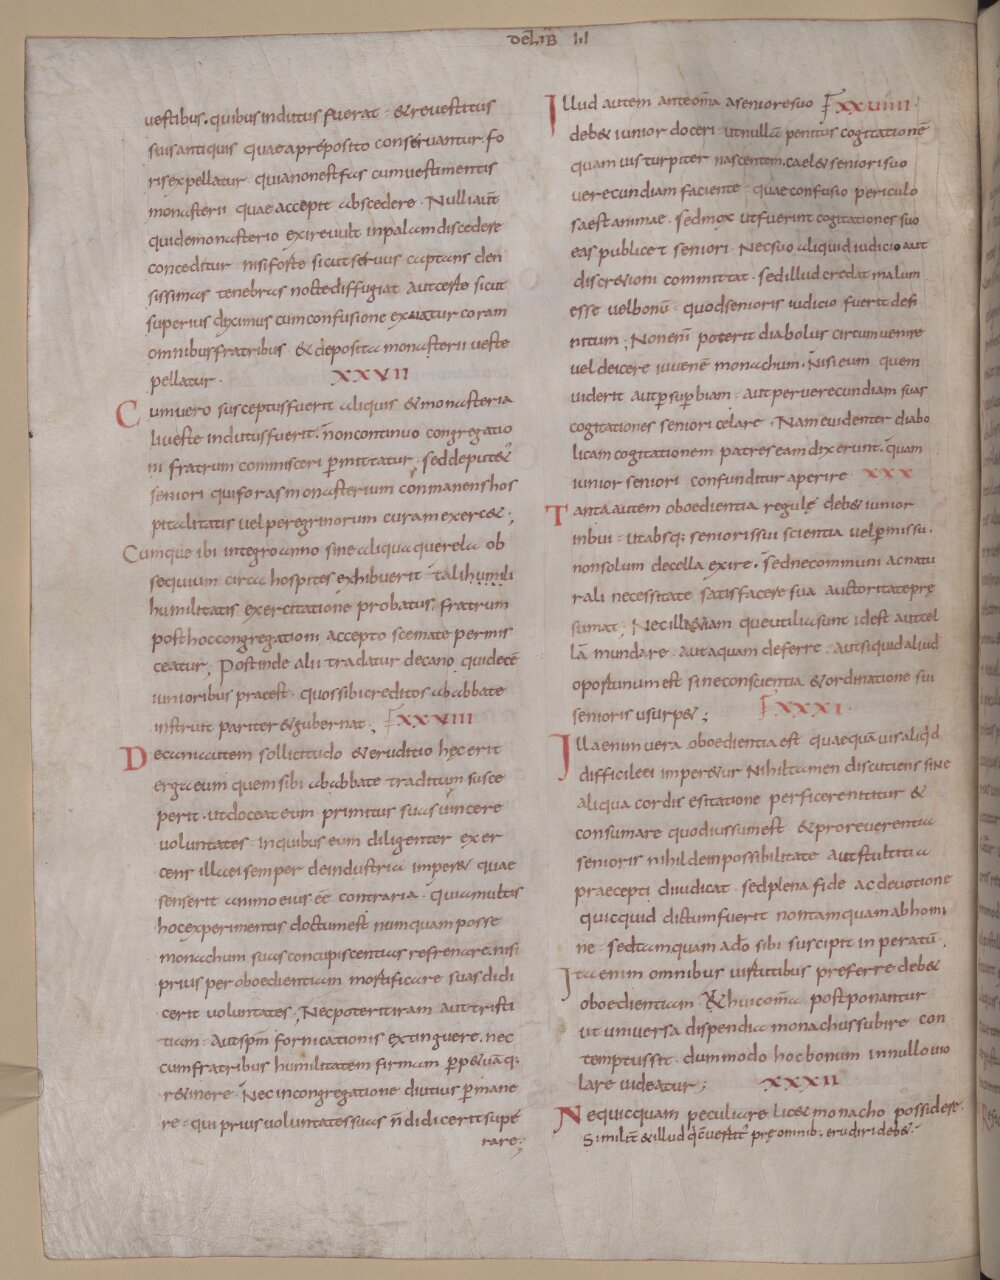 DELIB III
uestibus. quibus indutus fuerat. & reuestitus
suis antiquis quae a preposito conseruantur fo
ris expellatur. quia non est fas cum uestimentis
monasterii quae accepit abscedere. Nulli aut̄
quidemonasterio exire uult inpalam discedere
conceditur. nisi forte sicut seruus captans den
sissimas tenebras nocte diffugiat. aut certe sicut
superius diximus cum confusione exuatur coram
omnibus fratribus & deposita monasterii ueste
pellatur. XXVII
Cum uero susceptus fuerit aliquis & monasteria
li ueste indutus fuerit. non continuo congregatio
ni fratrum commisceri p̄mittatur. sed deputet᷒
seniori qui foras monasterium conmanens hos
pitalitatis uel peregrinorum curam exerc&.;
Cumque ibi integro anno sine aliqua querela ob
sequium circa hospites exhibuerit tali humili
humilitatis exercitatione probatus. fratrum
post hoc congregationi accepto scemate permis
ceatur; Postinde alii tradatur decano qui decē
iunioribus praeest. quos sibi creditos ab abbate
instruit pariter & gubernat.; XXVIII
Decani autem sollicitudo & eruditio hęc erit
erga eum quem sibi ab abbate traditum susce
perit. ut doceat eum primitus suas uincere
uoluntates. In quibus eum diligenter exer
cens illa ei semper de industria imper& quae
senserit animo eius ēē contraria. Quia multis
hoc experimentis doctum est numquam posse
monachum suas concupiscentias refrenare. nisi
prius per oboedientiam mortificare suas didi
cerit uoluntates; Nec poterit iram aut tristi
tiam. aut sp̄m fornicationis extinguere. nec
cum fratribus humilitatem firmam p̄p&uāq:
r&inere. Nec in congregatione diutius p̄mane
re. qui prius uoluntates suas n̄ didicerit supe
rare;
Illud autem ante om̄a a seniore suo XXVIIII
deb& iunior doceri. ut nullā penitus cogitationē
quamuis turpiter nascentem. cael& seniori suo
uerecundiam faciente. quae confusio periculo
sa est animae. sed mox ut fuerint cogitationes suo
eas publicet seniori. Nec suo aliquid iudicio aut
discr&ioni committat. sed illud credat malum
esse uel bonū. quod senioris iudicio fuerit defi
nitum; Non enī poterit diabolus circumuenire
uel deicere iuuenē monachum. Nisi eum quem
uiderit aut p̄ sup̄biam. aut per uerecundiam suas
cogitationes seniori celare. Nam euidenter diabo
licam cogitationem patres eam dixerunt. quam
iunior seniori confunditur aperire. XXX
Tanta autem oboedientia regulę deb& iunior
inbui. ut absq: senioris sui scientia uel p̄missu.
non solum de cella exire. sed nec communi ac natu
rali necessitate satisfacere sua auctoritate prę
sumat; Nec illa &iam que utilia sunt id est aut cel
lā mundare. aut aquam deferre. aut si quid aliud
oportunum est sine conscientia & ordinatione sui
senioris usurp&; XXXI.
Illa enim uera oboedientia est quaequā uis aliq̄d
difficile ei imper&ur. Nihil tamen discutiens sine
aliqua cordis esitatione perficere nititur &
consumare quod iussum est & pro reuerentia
senioris nihil de inpossibilitate aut stultitia
praecepti diiudicat. sed plena fide ac deuotione
quicquid dictum fuerit non tamquam ab homi
ne. sed tamquam a dō sibi suscipit inperatū.
Ita enim omnibus uirtutibus preferre deb&
oboedientiam. & huic om̄a postponantur
ut uniuersa dispendia monachus subire con
temptus sit. dummodo hoc bonum in nullo uio
lare uideatur; XXXII
Nequicquam peculiare lic& monacho possidere.
Similit̄ & illud q̄ c̄uertit᷒ prę omnib: erudiri deb&.